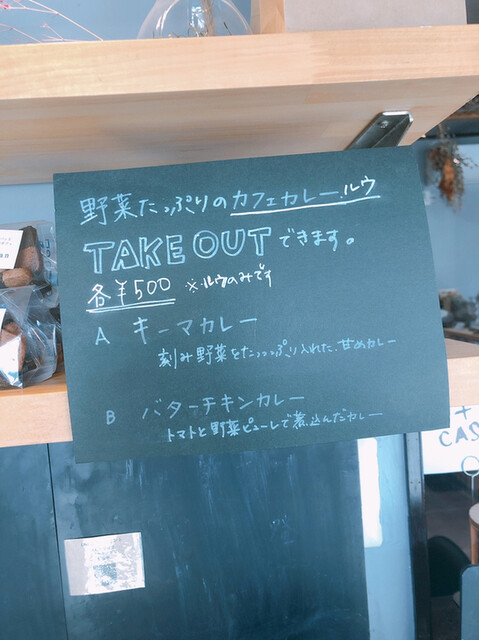 野菜たっぷりのカフェカレールウ
TAKE OUTできます。
各¥500 ※ルウのみです
A キーマカレー
刻み野菜をたっっっぷり入れた、甘めカレー
B バターチキンカレー
トマトと野菜ピューレで煮込んだカレー
+
CAS